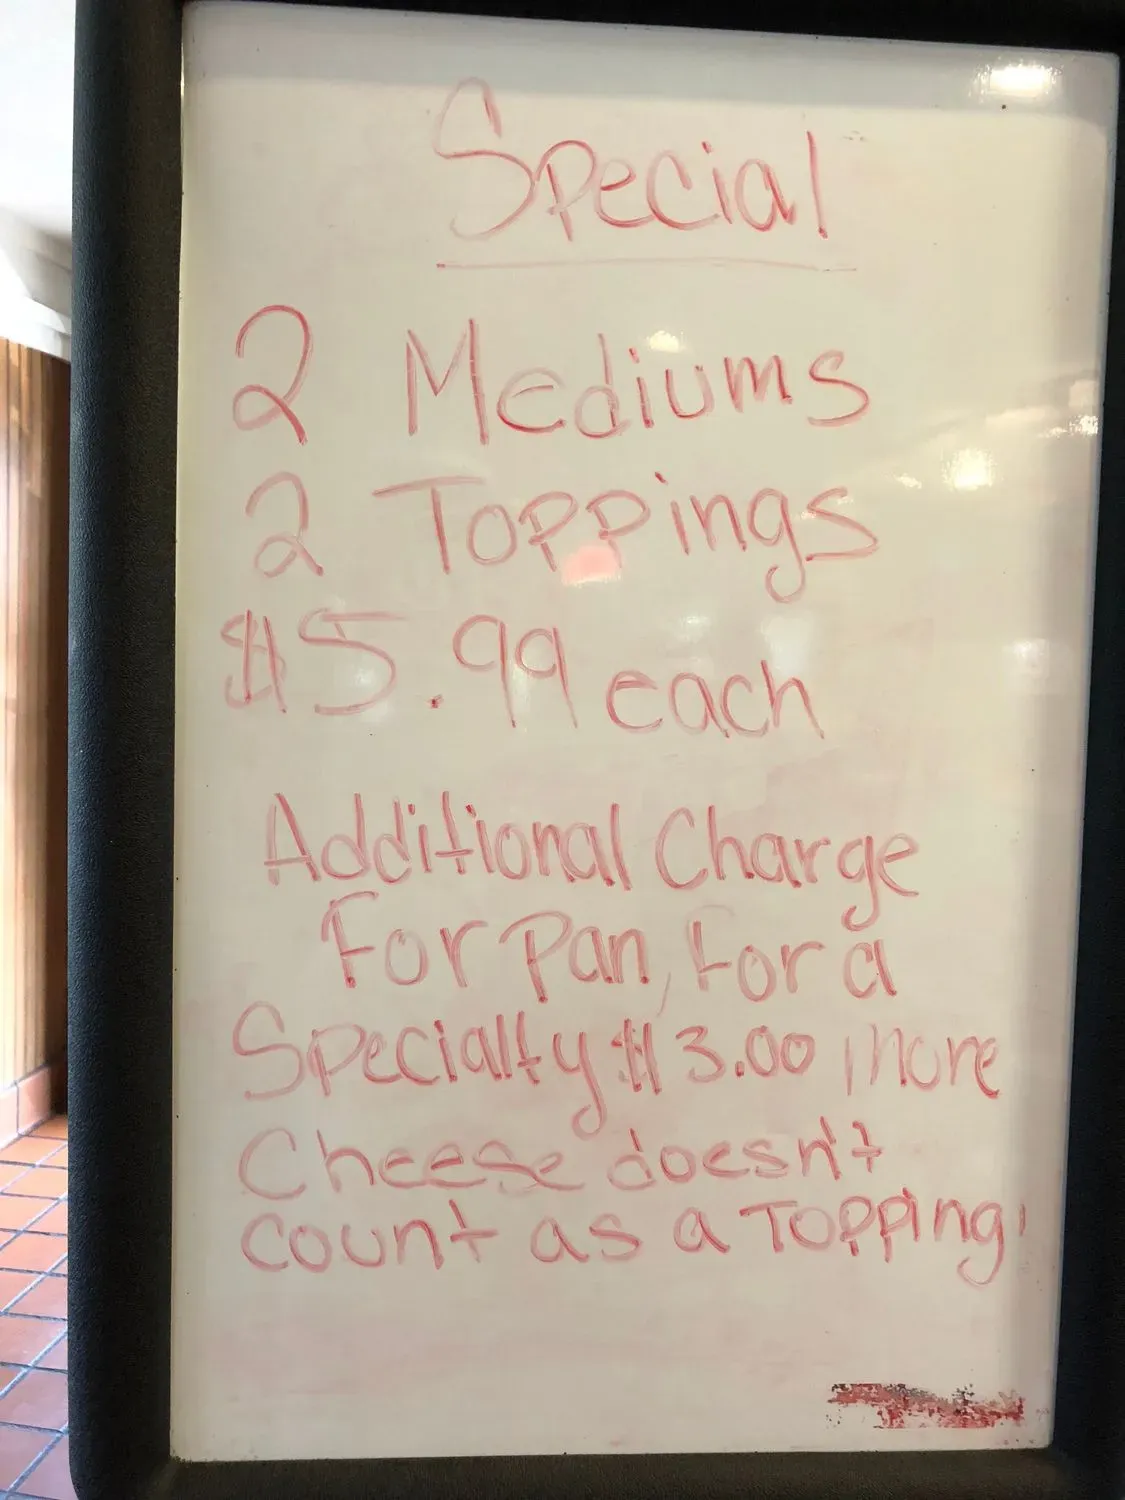 Special
2 Mediums
2 Toppings
$5.99 each
Additional Charge
For Pan, for a
Specialty $3.00 more
Cheese doesn't
count as a Topping